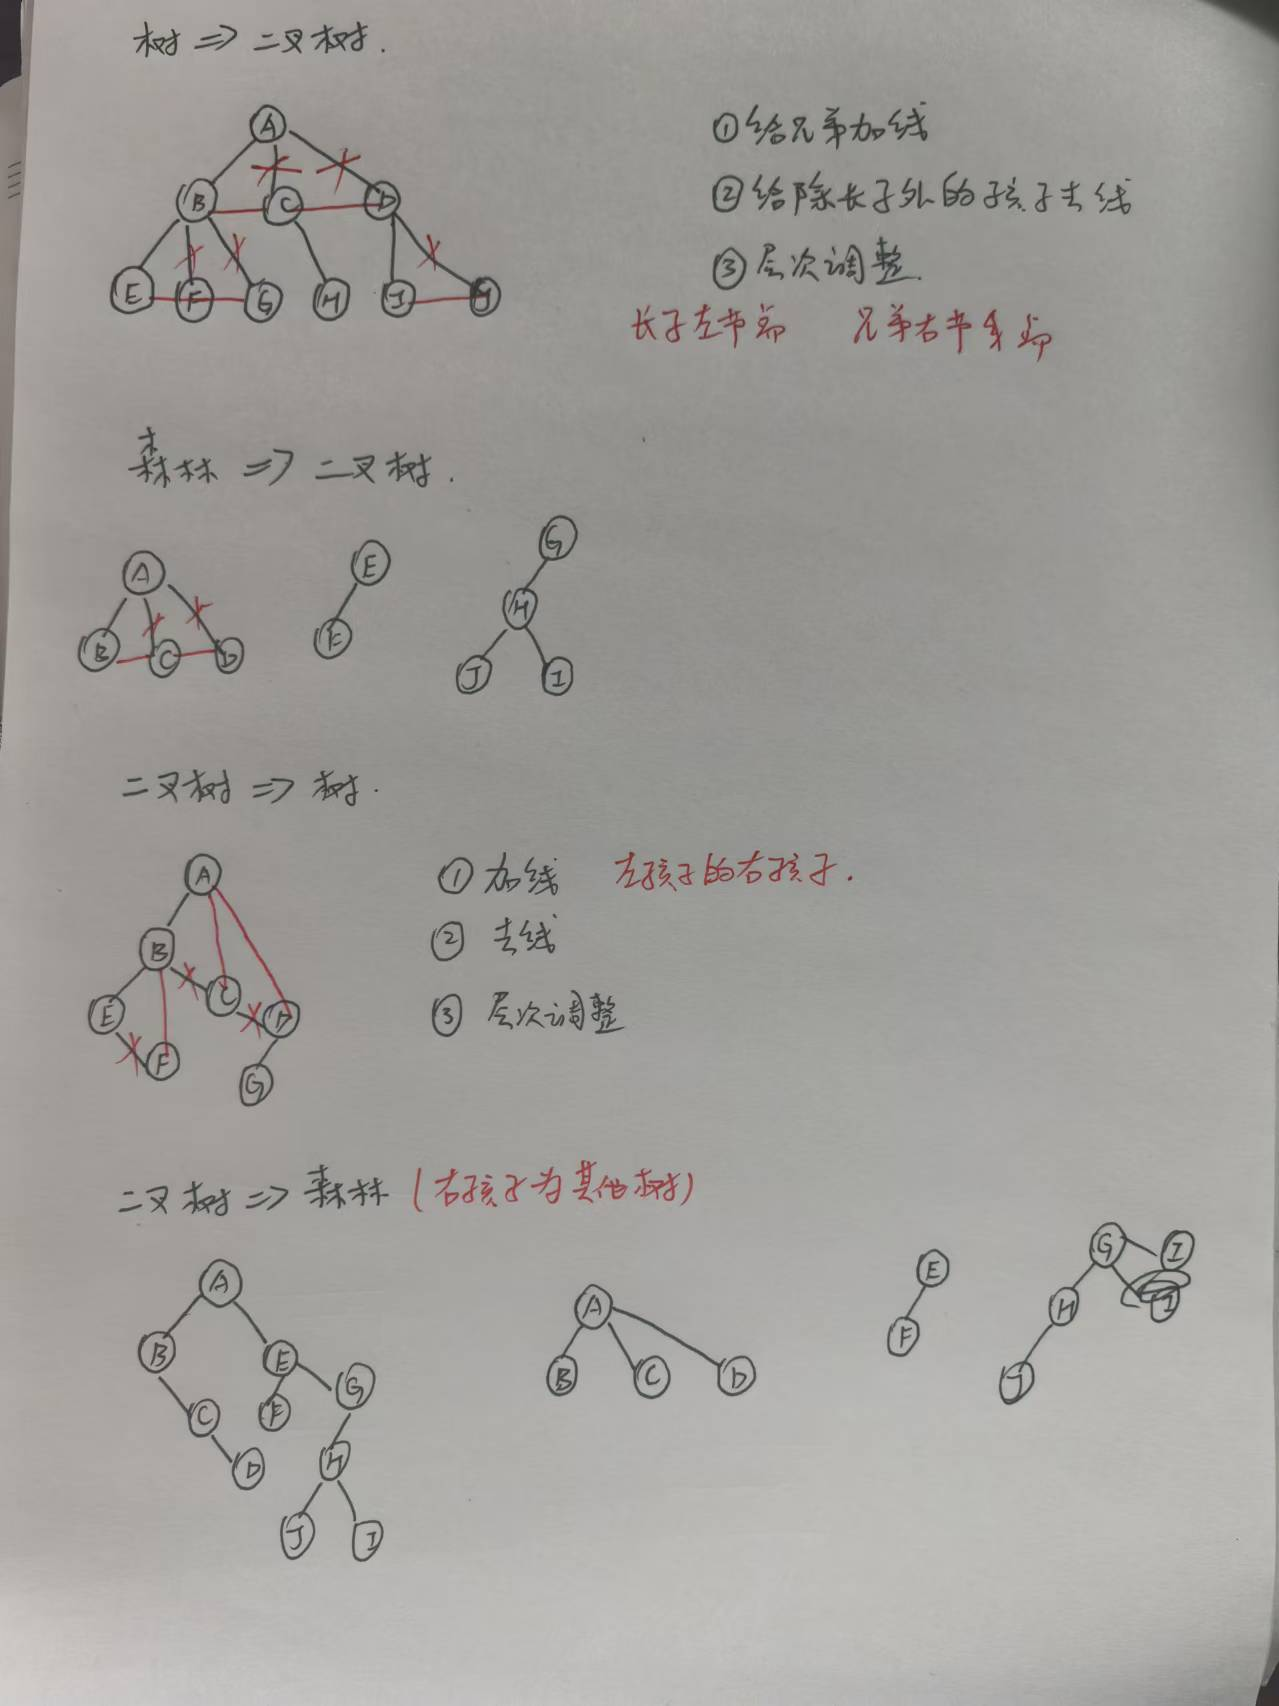 树 => 二叉树.
A
B C D
E F G H I
①给兄弟加线
②给除长子外的孩子去线
③层次调整.
长子左节 兄弟右节
森林 => 二叉树.
A E G
B C D F H
J I
二叉树 => 树.
A
B
E C D
F G
① 加线 左孩子的右孩子.
② 去线
③ 层次调整
二叉树 => 森林 (右孩子为其他树)
A
B E G
C F
D H
J I
A
B C D
E
F
G I
H I
J